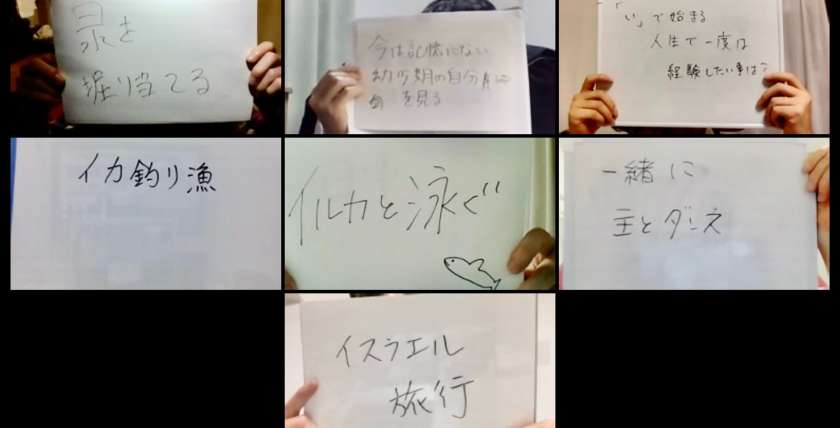 泉を
掘り当てる
今は記憶にない
幼少期の自分
を見る
「い」で始まる
人生で一度は
経験したい事は?
イカ釣り漁
イルカと泳ぐ
一緒に
主とダンス
イスラエル
旅行